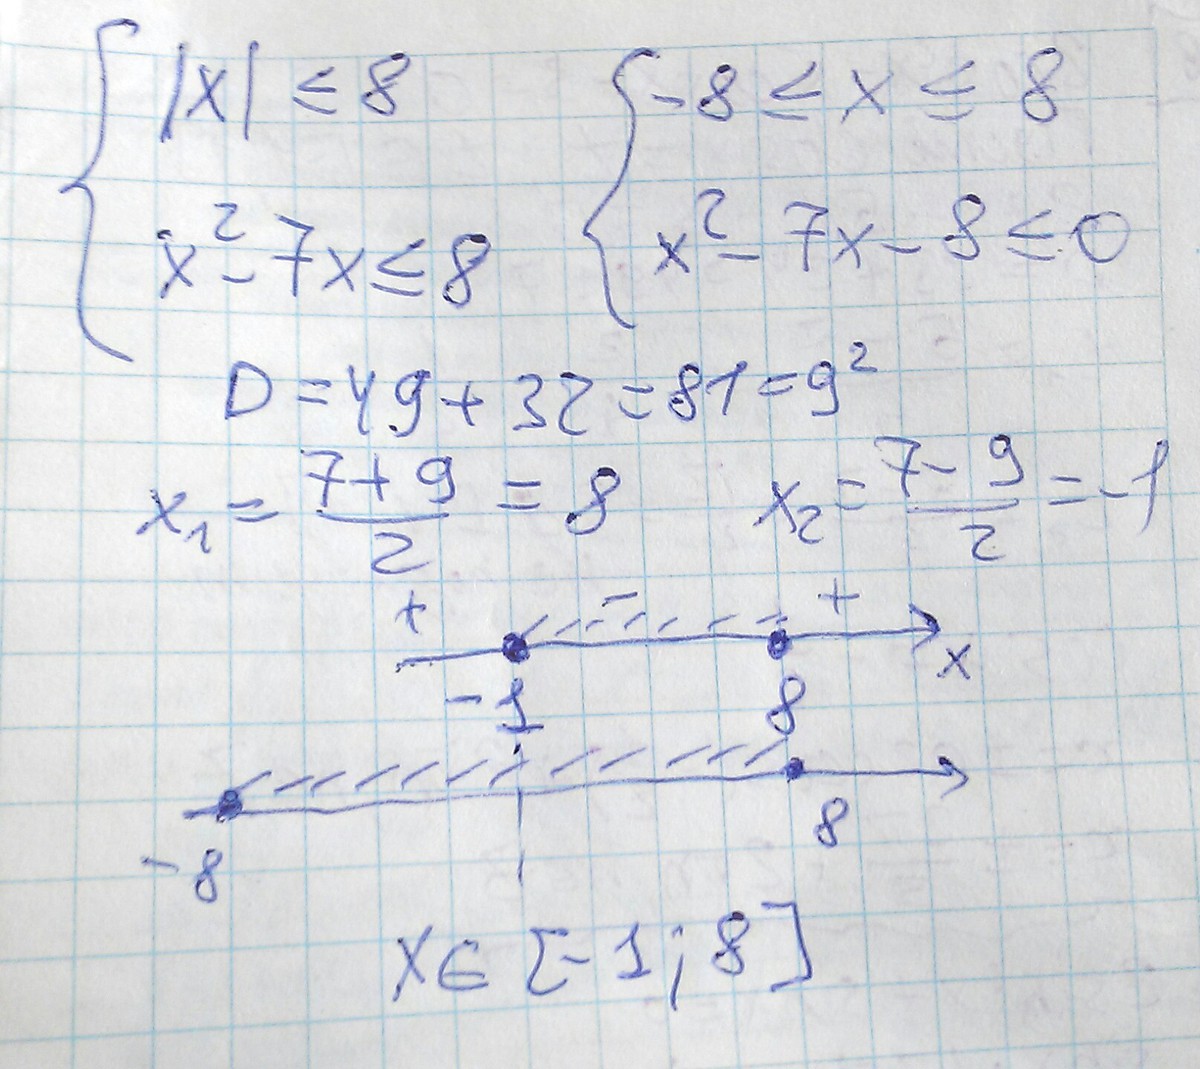 |x| ≤ 8 -8 ≤ x ≤ 8
x² - 7x ≤ 8 x² - 7x - 8 ≤ 0
D = 49 + 32 = 81 = 9²
x₁ = (7 + 9)/2 = 8 x₂ = (7 - 9)/2 = -1
+ - +
x
-1 8
-8 8
x ∈ [-1; 8]